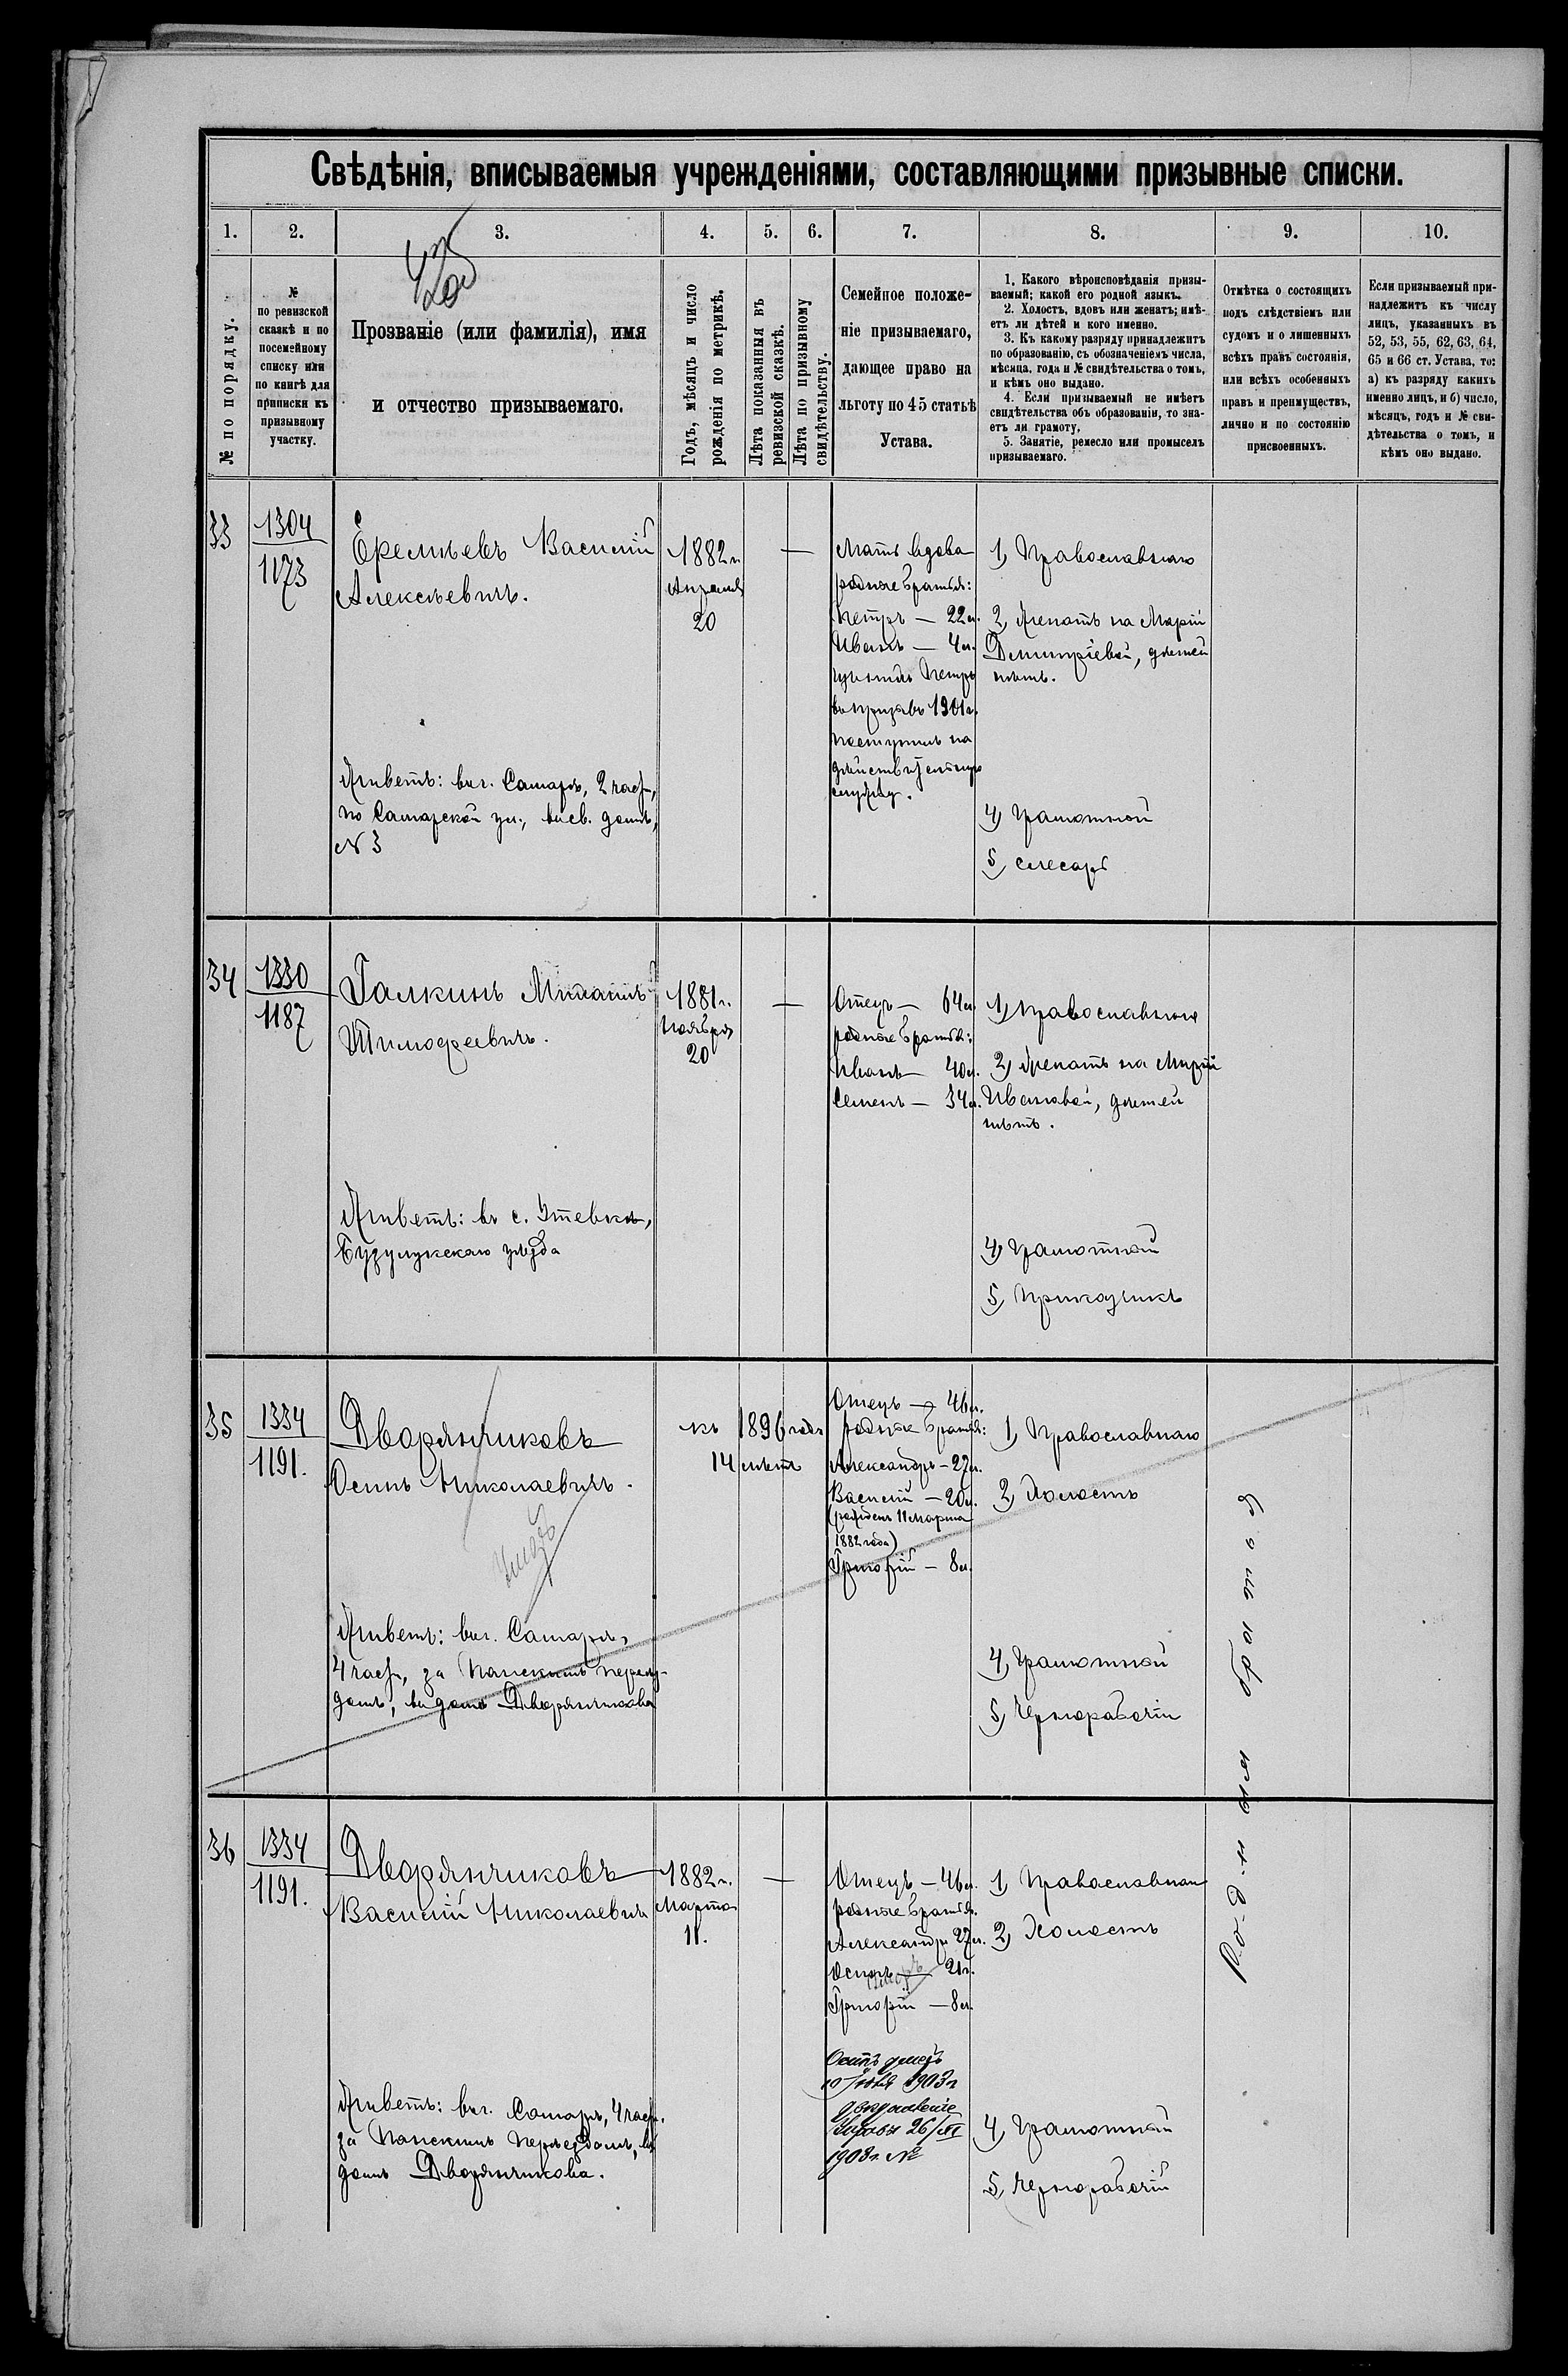 Свѣдѣнія, вписываемыя учрежденіями, составляющими призывные списки.
1. 2. 3. 4. 5. 6. 7. 8. 9. 10.
№ по порядку.
№
по ревизской
сказкѣ и по
посемейному
списку или
по книгѣ для
приписки къ
призывному
участку.
Прозваніе (или фамилія), имя
и отчество призываемаго.
Годъ, мѣсяцъ и число
рожденія по метрикѣ.
Лѣта показанныя въ
ревизской сказкѣ.
Лѣта по призывному
свидѣтельству.
Семейное положе-
ніе призываемаго,
дающее право на
льготу по 45 статьѣ
Устава.
1. Какого вѣроисповѣданія призы-
ваемый; какой его родной языкъ.
2. Холостъ, вдовъ или женатъ; имѣ-
етъ ли дѣтей и кого именно.
3. Къ какому разряду принадлежитъ
по образованію, съ обозначеніемъ числа,
мѣсяца, года и № свидѣтельства о томъ,
и кѣмъ оно выдано.
4. Если призываемый не имѣетъ
свидѣтельства объ образованіи, то зна-
етъ ли грамоту,
5. Занятіе, ремесло или промыселъ
призываемаго.
Отмѣтка о состоящихъ
подъ слѣдствіемъ или
судомъ и о лишенныхъ
всѣхъ правъ состоянія,
или всѣхъ особенныхъ
правъ и преимуществъ,
лично и по состоянію
присвоенныхъ.
Если призываемый при-
надлежитъ къ числу
лицъ, указанныхъ въ
52, 53, 55, 62, 63, 64,
65 и 66 ст. Устава, то:
а) къ разряду какихъ
именно лицъ, и б) число,
мѣсяцъ, годъ и № сви-
дѣтельства о томъ, и
кѣмъ оно выдано.
33
1304
1173
Василій
Алексѣевичъ.
Живетъ: въ г. Самарѣ, 2 части,
по Самарской ул., въ св. домѣ,
№ 3
1882 г.
Апрѣля
20
—
Мать вдова
родные братья:
Петръ — 22 л.
Иванъ — 4 л.
Петръ
въ призывъ 1901 г.
поступилъ на
дѣйствительную
службу.
1) Православнаго
2) Женатъ на Маріи
Дмитріевой, дѣтей
нѣтъ.
4) Грамотный
5) Слесарь
34
1330
1187
Галкинъ Михаилъ
Тимофеевичъ.
Живетъ: въ с. Утевкѣ,
Бузулукскаго уѣзда
1881 г.
Ноября
20
—
Отецъ — 64 л.
родные братья:
Иванъ — 40 л.
Семенъ — 34 л.
1) Православнаго
2) Женатъ на Маріи
Ивановой, дѣтей
нѣтъ.
4) Грамотный
5) Приказчикъ
35
1334
1191.
Дворянчиковъ
Осипъ Николаевичъ.
Умеръ
Живетъ: въ г. Самарѣ,
4 части, за Панскимъ переѣз-
домъ, въ домѣ Дворянчикова
къ 1896 году
14 лѣтъ
Отецъ — 46 л.
родные братья:
Александръ — 27 л.
Василій — 20 л.
(рожденъ 11 Марта
1882 года)
Григорій — 8 л.
1) Православнаго
2) Холостъ
4) Грамотный
5) Чернорабочій
Родные братья
36
1334
1191.
Дворянчиковъ
Василій Николаевичъ
Живетъ: въ г. Самарѣ, 4 части,
за Панскимъ переѣздомъ, въ
домѣ Дворянчикова.
1882 г.
Марта
11.
—
Отецъ — 46 л.
родные братья.
Александръ 27 л.
Осипъ — 21 г.
умеръ
Григорій — 8 л.
Осипъ умеръ
1903 г.
1903 г. №
1) Православнаго
2) Холостъ
4) Грамотный
5) Чернорабочій